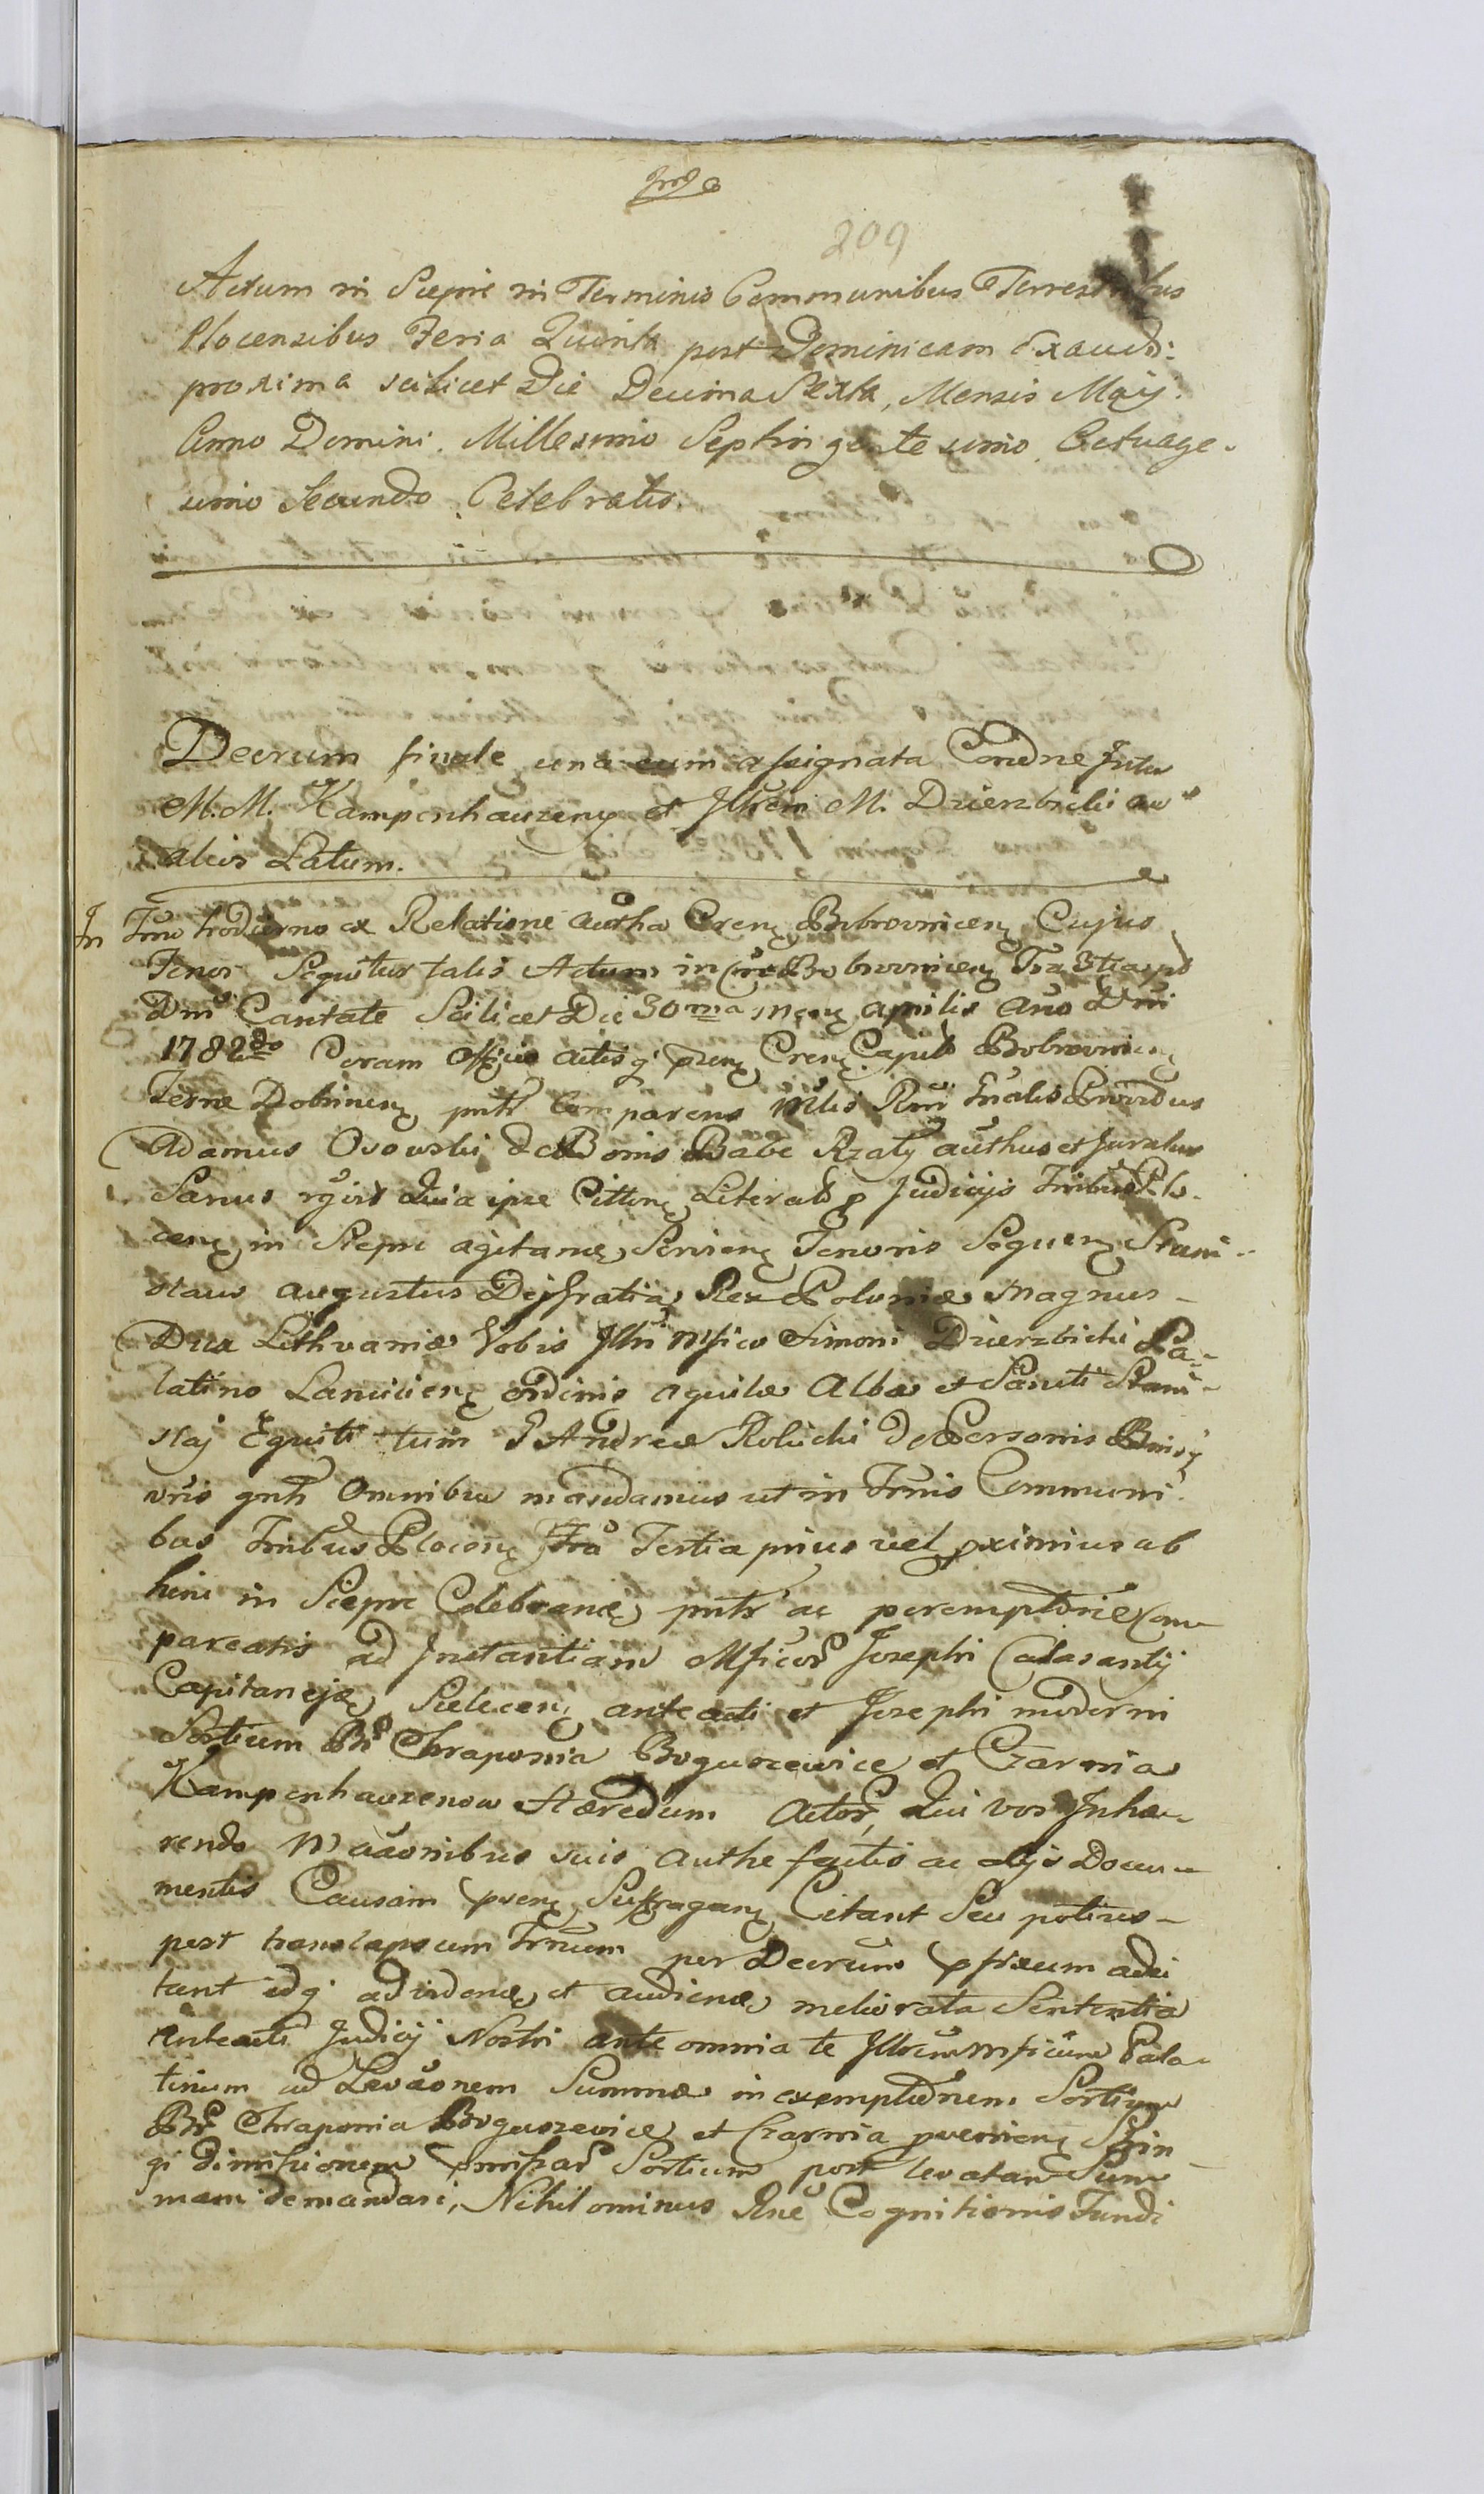 209
Actum in Sieprc in Terminis Communibus Terrestribus
Plocensibus Feria Quinta post Dominicam Exaudi
proxima scilicet Die Decima Sexta, Mensis Maij
Anno Domini Millesimo Septingentesimo Octuage-
simo Secundo Celebratis.
Decrum finale una cum assignata Condne Inter
M.M. Kampenhauzeny et Illrem M. Dzierzbicki ac
alios Latum.
In Trno hodierno ex Relatione autha Crens Bobrovnicens Cujus
Tenor Sequitur talis Actum in Bobrovnicens
Dnī Cantate Scilicet Die 30ma Mens aprilis Año Dni
1782do Coram Officio actisq prens Crens Capit Bobrovniens
Terrae Dobrinens pntr Comparens Mtlis Rni Gnalis Providus
Adamus Osowski de Bonis Babe Rzaty authus et Juratus
Sanus Quia ipse Cittnes Literales p Judicijs Trribus Plo-
cens in Sieprc agitanda Seriens Tenoris Sequens Stani-
slaus augustus Dei Gratia Rex Poloniae Magnus
Dux Lithvaniae Vobis Illri Mfico Simoni Dzierzbicki Pa-
latino Lanciciens ordinis aquilae Albae et Sancti Stani-
slaj Equiti tum G Andreae Rolicki de Personis Bnisq
vris gntr Omnibus mandamus ut in Trnis Communi-
bus Trribus Plocens Fra Tertia prius vel pximius ab
hinc in Sieprc Celebrand pntr ac peremptorie Com
pareatis ad Instantiam Mficor Josephi Calasantij
Capitaneja Sielecens anteacti et Josephi moderni
Sortium Br Chraponia Boguszewice et Czarnia
Kampenhauzenow Haeredum Actor, Qui vos Inhae-
rendo Maaonibus suis authe factis ac alijs Docu-
mentis Causam prens Suffragans Citant Seu potius
post translapsum Trnum per Decrum pfixum adci
tant idq ad videnda et audienda meliorata Sententia
anteacti Judicij Nostri ante omnia te Illrem Mficum Pala-
tinum ad Levaonem Summae in exemptionem Sortium
Br Chraponia Boguszewice et Czarnia pvenien Strin
gi dimissionem pmissar Sortium post levatam Sum
mam demandari, Nihilominus Rne Cognitionis Fundi